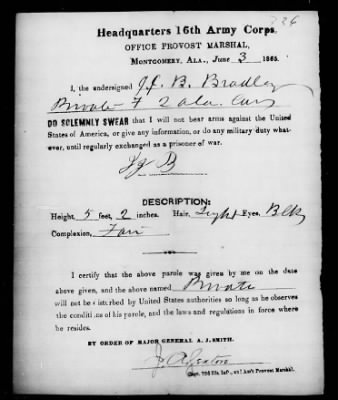 226
Headquarters 16th Army Corps,
OFFICE PROVOST MARSHAL,
MONTGOMERY, ALA., June 3 1865.
I, the undersigned J. B. Bradley
Private F 2 Ala. Cav
DO SOLEMNLY SWEAR that I will not bear arms against the United
States of America, or give any information, or do any military duty what-
ever, until regularly exchanged as a prisoner of war.
DESCRIPTION:
Height, 5 feet, 2 inches. Hair, Light Eyes, Blk
Complexion, Fair
I certify that the above parole was given by me on the date
above given, and the above named Private
will not be disturbed by United States authorities so long as observes
the conditions of his parole, and the laws and regulations in force where
he resides.
BY ORDER OF MAJOR GENERAL A. J. SMITH.
Capt. Ills. Inf., and Ass't Provost Marshal.